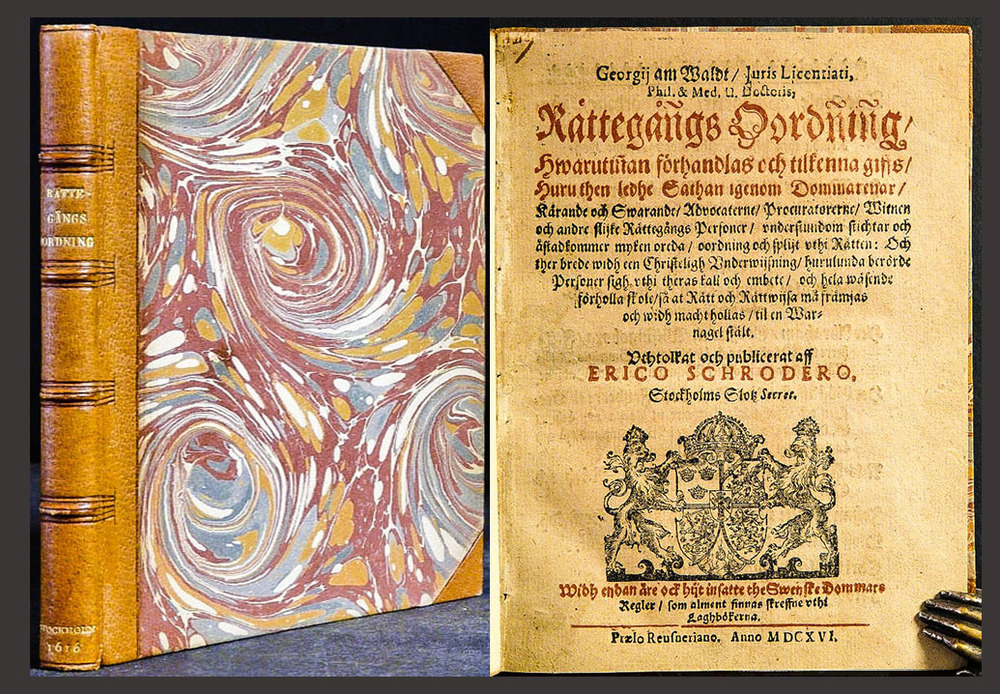 RÄTTE-
GÅNGS
ORDNING
STOCKHOLM
1616
Georgij am Waldt / Juris Licentiati,
Phil. & Med. U. Doctoris,
Rättegångs Oordning /
Hwarutinnan förhandlas och tilkenna giffs /
Huru then ledhe Sathan igenom Dommarenar /
Kärande och Swarande / Advocaterne / Procuratorerne / Witnen
och andre slijke Rättegångs Personer / understundom stichtar och
åstadkommer myken oreda / oordning och splijt vthi Rätten: Och
ther brede widh een Christeligh Vnderwijsning / hurulunda berörde
Personer sigh vthi theras kall och embete / och hela wäsende
förholla skole / så at Rätt och Rättwijsa må främjas
och widh macht hollas / til en War-
nagel stält.
Vthtolkat och publicerat aff
ERICO SCHRODERO,
Stockholms Slotz Secret.
Widh endan äre ock hijt insatte the Swenske Dommars
Regler / som alment finnas skreffne vthi
Laghbökerna.
Prælo Reusneriano. Anno MDCXVI.